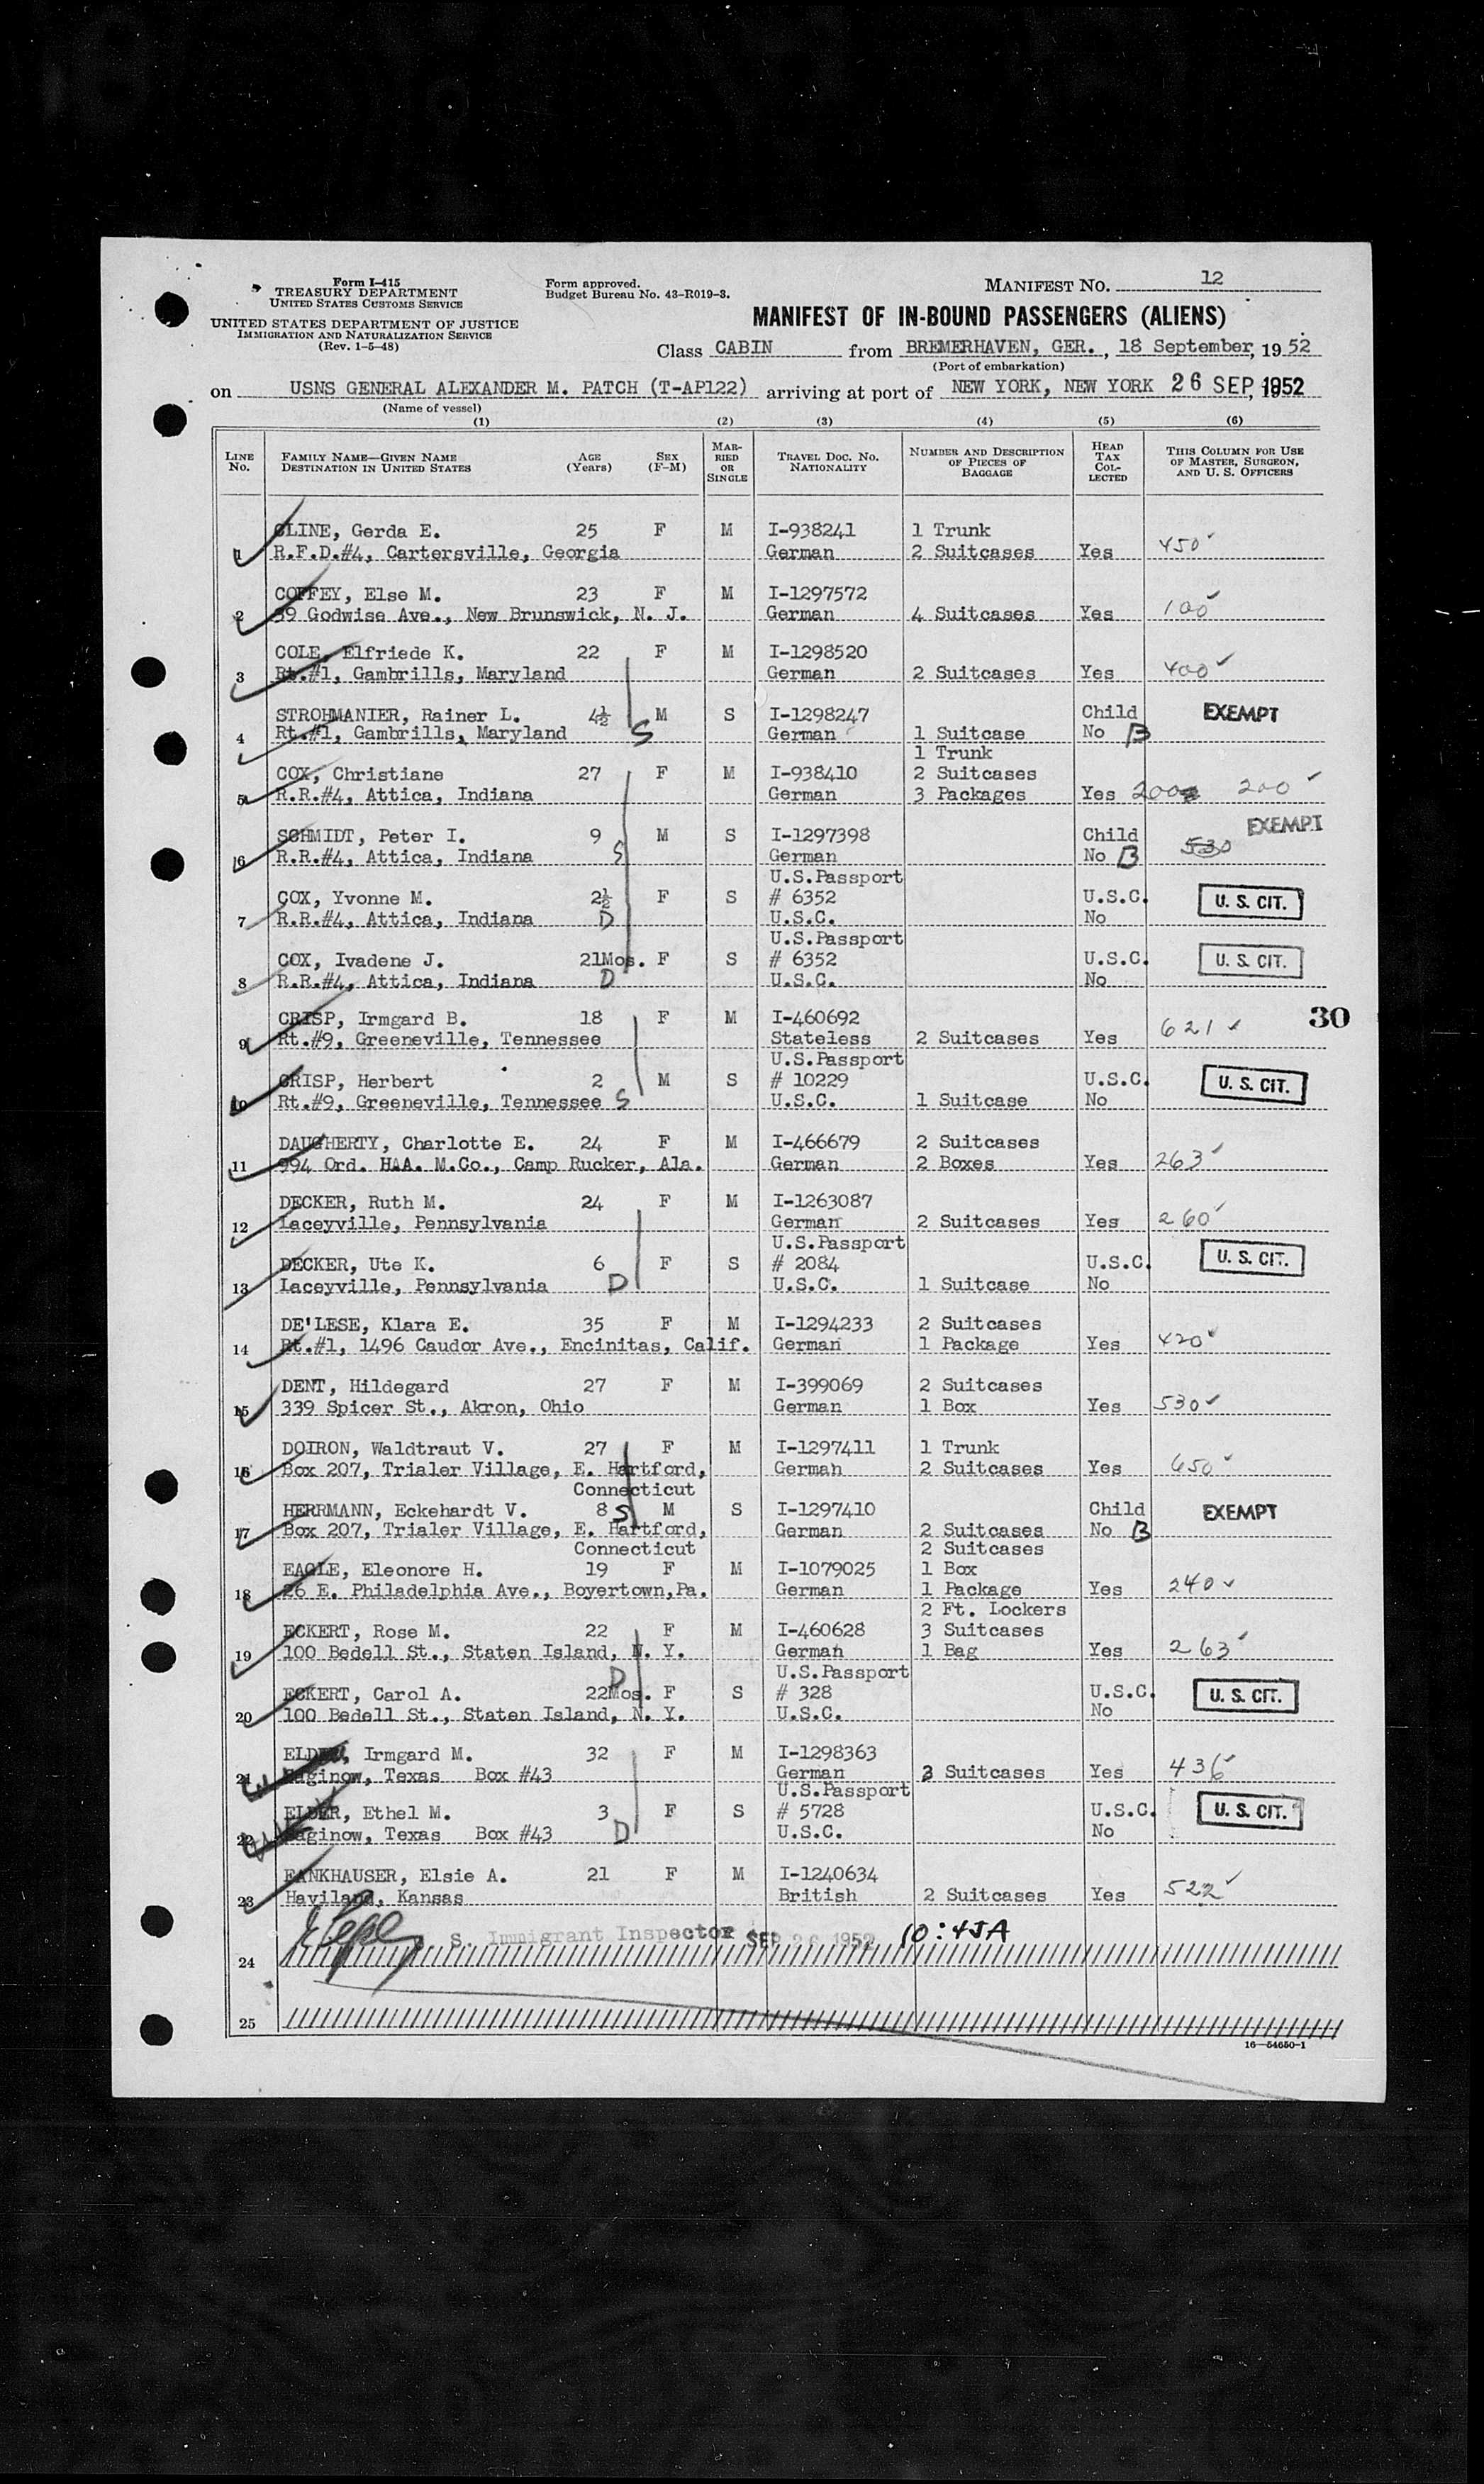 Form I-415
TREASURY DEPARTMENT
UNITED STATES CUSTOMS SERVICE
UNITED STATES DEPARTMENT OF JUSTICE
IMMIGRATION AND NATURALIZATION SERVICE
(Rev. 1-5-48)
Form approved.
Budget Bureau No. 43-R019-3.
MANIFEST NO. 12
MANIFEST OF IN-BOUND PASSENGERS (ALIENS)
Class CABIN from BREMERHAVEN, GER., 18 September, 1952
(Port of embarkation)
on USNS GENERAL ALEXANDER M. PATCH (T-AP122) arriving at port of NEW YORK, NEW YORK 26 SEP, 1952
(Name of vessel)
(1) (2) (3) (4) (5) (6)
LINE No. FAMILY NAME—GIVEN NAME DESTINATION IN UNITED STATES AGE (Years) SEX (F-M) MARRIED OR SINGLE TRAVEL DOC. NO. NATIONALITY NUMBER AND DESCRIPTION OF PIECES OF BAGGAGE HEAD TAX COLLECTED THIS COLUMN FOR USE OF MASTER, SURGEON, AND U. S. OFFICERS
CLINE, Gerda E. 25 F M I-938241 1 Trunk
1 R.F.D.#4, Cartersville, Georgia German 2 Suitcases Yes 450
COFFEY, Else M. 23 F M I-1297572
2 39 Godwise Ave., New Brunswick, N. J. German 4 Suitcases Yes 100
COLE, Elfriede K. 22 F M I-1298520
3 Rt.#1, Gambrills, Maryland German 2 Suitcases Yes 400
STROHMANIER, Rainer L. 4½ M S I-1298247 Child EXEMPT
4 Rt.#1, Gambrills, Maryland S German 1 Suitcase No B
1 Trunk
COX, Christiane 27 F M I-938410 2 Suitcases
5 R.R.#4, Attica, Indiana German 3 Packages Yes 200 200
SCHMIDT, Peter I. 9 M S I-1297398 Child EXEMPT
6 R.R.#4, Attica, Indiana S German No B 530
U.S.Passport
COX, Yvonne M. 2½ F S # 6352 U.S.C. U. S. CIT.
7 R.R.#4, Attica, Indiana D U.S.C. No
U.S.Passport
COX, Ivadene J. 21Mos. F S # 6352 U.S.C. U. S. CIT.
8 R.R.#4, Attica, Indiana D U.S.C. No
CRISP, Irmgard B. 18 F M I-460692 30
9 Rt.#9, Greeneville, Tennessee Stateless 2 Suitcases Yes 621
U.S.Passport
CRISP, Herbert 2 M S # 10229 U.S.C. U. S. CIT.
10 Rt.#9, Greeneville, Tennessee S U.S.C. 1 Suitcase No
DAUGHERTY, Charlotte E. 24 F M I-466679 2 Suitcases
11 994 Ord. HAA. M.Co., Camp Rucker, Ala. German 2 Boxes Yes 263
DECKER, Ruth M. 24 F M I-1263087
12 Laceyville, Pennsylvania German 2 Suitcases Yes 260
U.S.Passport
DECKER, Ute K. 6 F S # 2084 U.S.C. U. S. CIT.
13 Laceyville, Pennsylvania D U.S.C. 1 Suitcase No
DE'LESE, Klara E. 35 F M I-1294233 2 Suitcases
14 Rt.#1, 1496 Caudor Ave., Encinitas, Calif. German 1 Package Yes 420
DENT, Hildegard 27 F M I-399069 2 Suitcases
15 339 Spicer St., Akron, Ohio German 1 Box Yes 530
DOIRON, Waldtraut V. 27 F M I-1297411 1 Trunk
16 Box 207, Trialer Village, E. Hartford, German 2 Suitcases Yes 650
Connecticut
HERRMANN, Eckehardt V. 8 S M S I-1297410 Child EXEMPT
17 Box 207, Trialer Village, E. Hartford, German 2 Suitcases No B
Connecticut 2 Suitcases
EAGLE, Eleonore H. 19 F M I-1079025 1 Box
18 26 E. Philadelphia Ave., Boyertown,Pa. German 1 Package Yes 240
2 Ft. Lockers
ECKERT, Rose M. 22 F M I-460628 3 Suitcases
19 100 Bedell St., Staten Island, N. Y. German 1 Bag Yes 263
D U.S.Passport
ECKERT, Carol A. 22Mos. F S # 328 U.S.C. U. S. CIT.
20 100 Bedell St., Staten Island, N. Y. U.S.C. No
ELDER, Irmgard M. 32 F M I-1298363
21 Saginow, Texas Box #43 German 3 Suitcases Yes 436
U.S.Passport
ELDER, Ethel M. 3 F S # 5728 U.S.C. U. S. CIT.
22 Saginow, Texas Box #43 D U.S.C. No
FANKHAUSER, Elsie A. 21 F M I-1240634
23 Haviland, Kansas British 2 Suitcases Yes 522
S. Immigrant Inspector SEP 26 1952 10:45A
24
25
16—54650-1